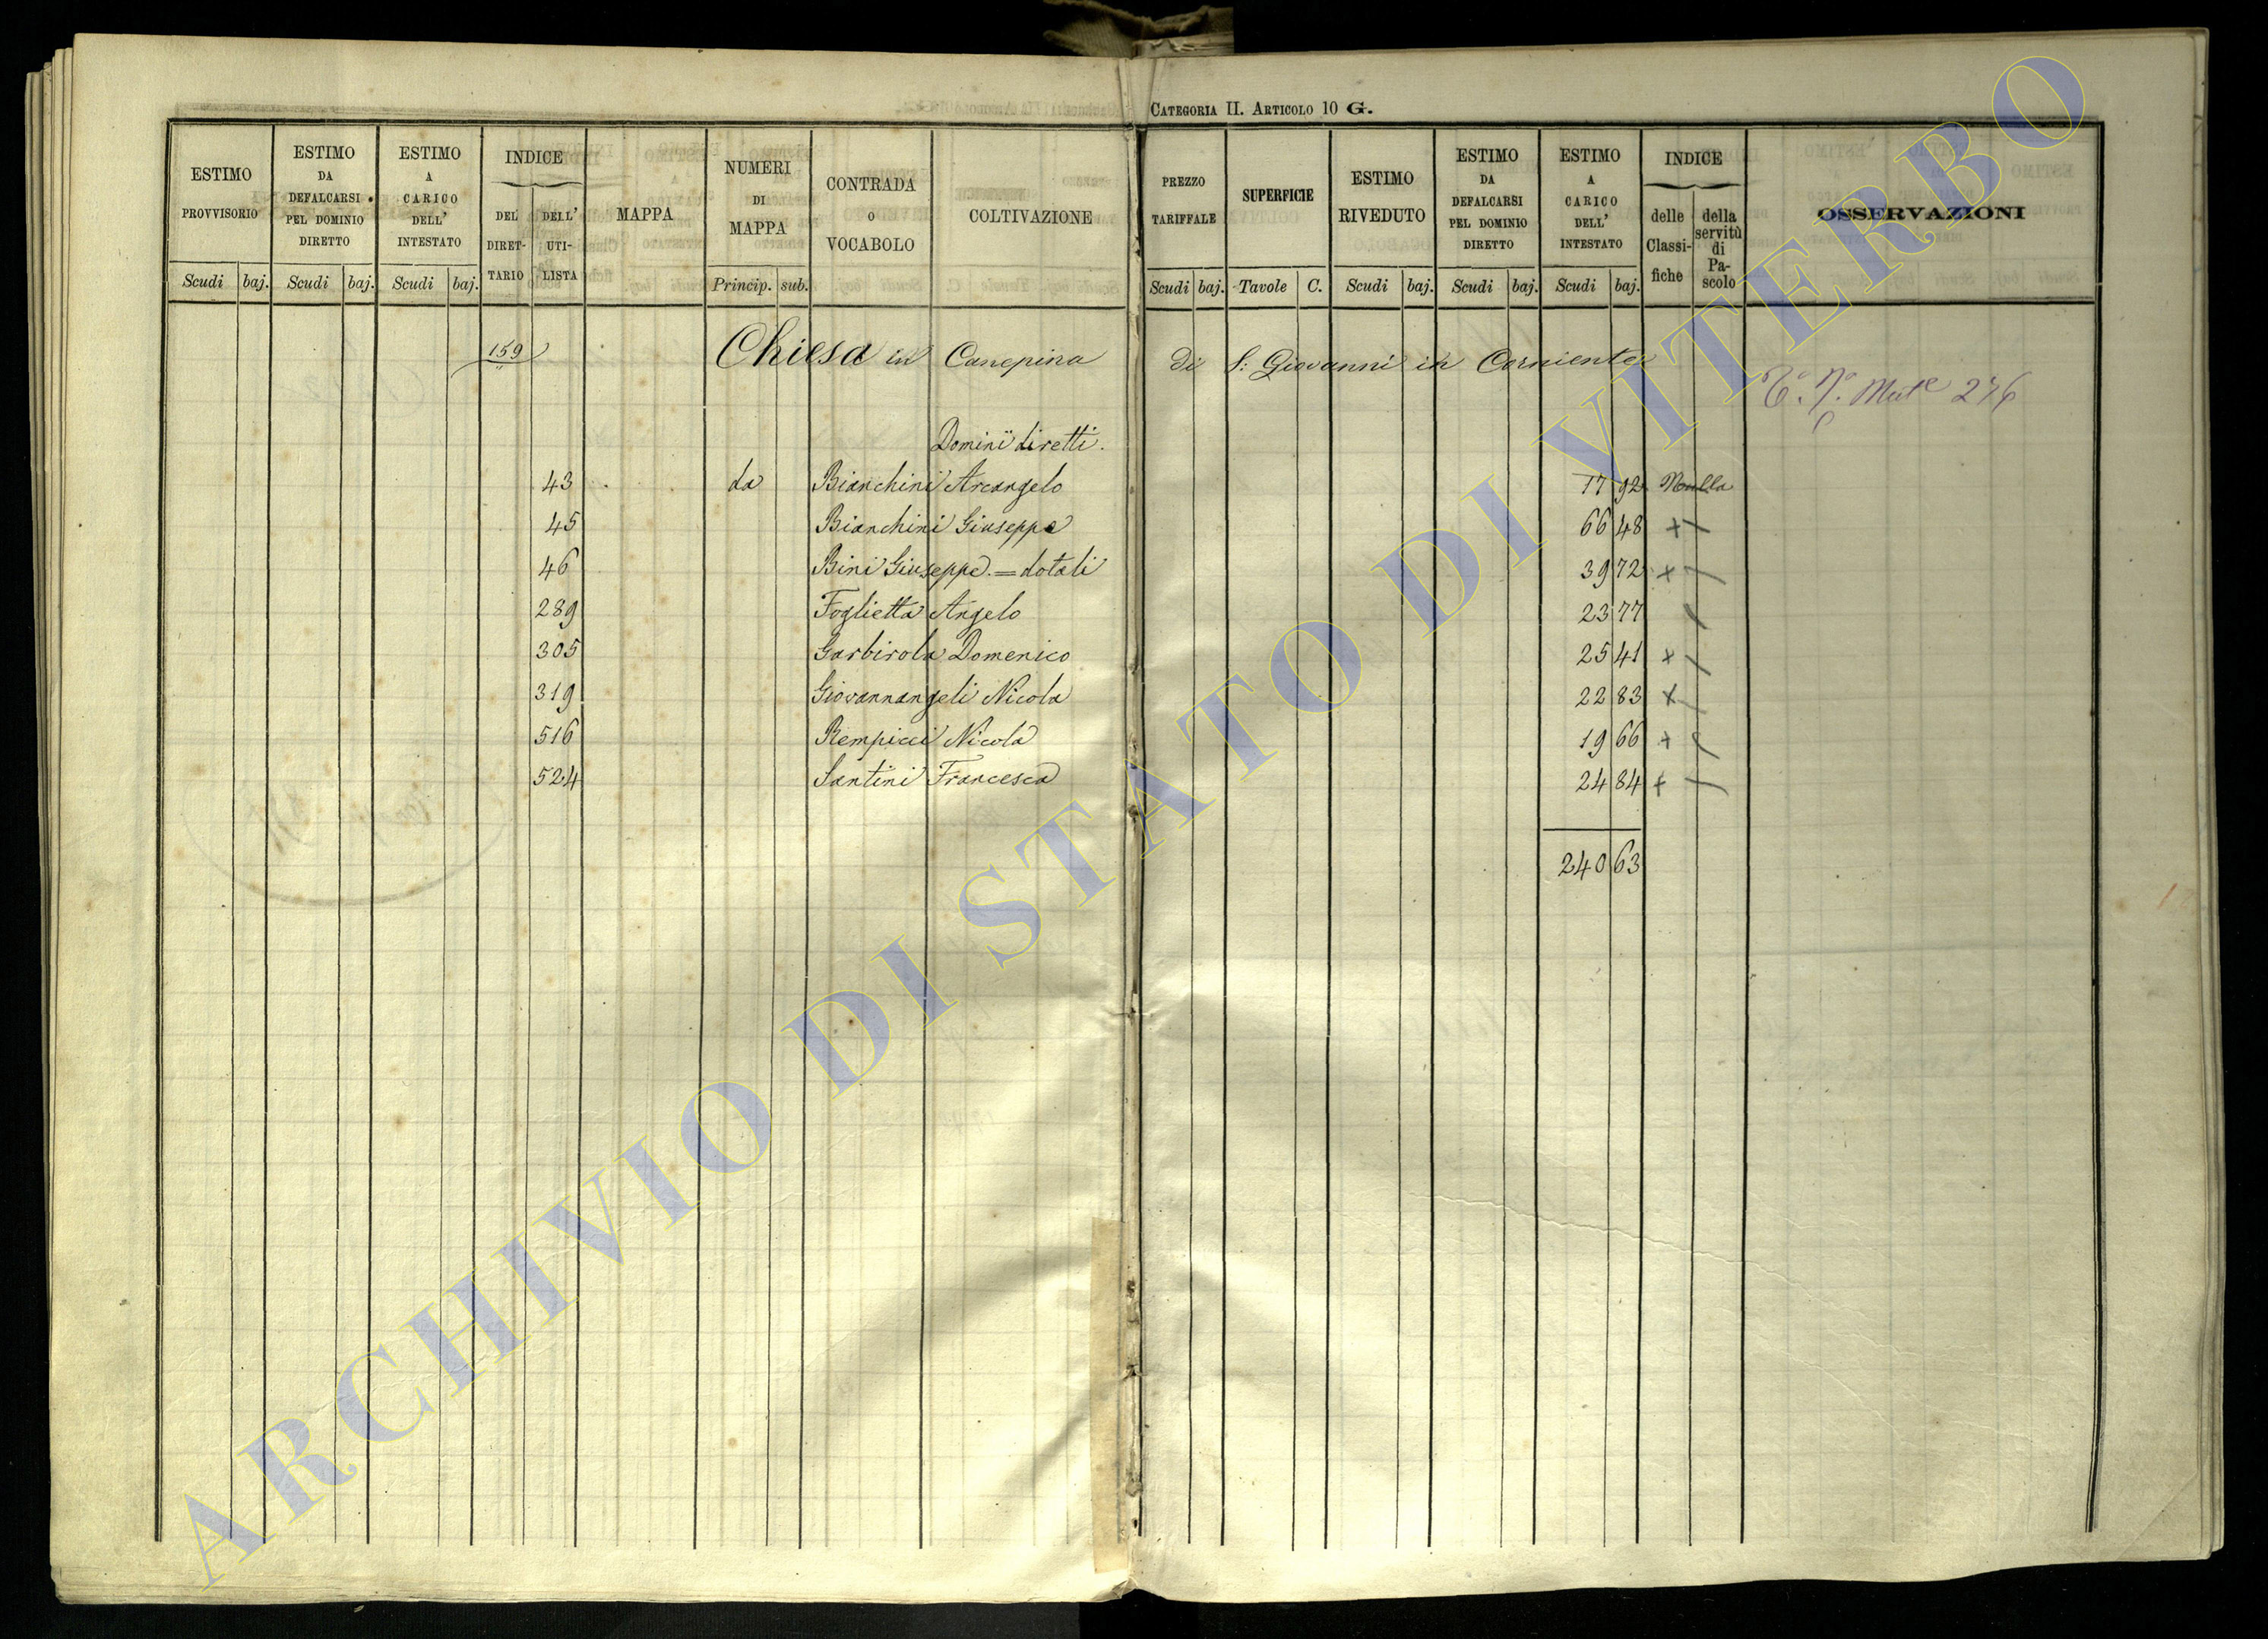 CATEGORIA II. ARTICOLO 10 G.
ESTIMO PROVVISORIO
Scudi baj.
ESTIMO DA DEFALCARSI PEL DOMINIO DIRETTO
Scudi baj.
ESTIMO A CARICO DELL' INTESTATO
Scudi baj.
INDICE
DEL DIRET-TARIO
DELL' UTI-LISTA
MAPPA
NUMERI DI MAPPA
Princip. sub.
CONTRADA O VOCABOLO
COLTIVAZIONE
PREZZO TARIFFALE
Scudi baj.
SUPERFICIE
Tavole C.
ESTIMO RIVEDUTO
Scudi baj.
ESTIMO DA DEFALCARSI PEL DOMINIO DIRETTO
Scudi baj.
ESTIMO A CARICO DELL' INTESTATO
Scudi baj.
INDICE
delle Classi-fiche
della servitù di Pa-scolo
OSSERVAZIONI
159 Chiesa in Canepina di S: Giovanni in
Mut.e 276
Dominii diretti.
43 da Bianchini Arcangelo 17 92 Nulla
45 Bianchini Giuseppe 66 48 +
46 Bini Giuseppe = dotali 39 72 +
289 Foglietta Angelo 23 77
305 Garbirola Domenico 25 41 +
319 Giovannangeli Nicola 22 83 +
516 Rempicci Nicola 19 66 +
524 Santini Francesca 24 84 +
240 63
ARCHIVIO DI STATO DI VITERBO